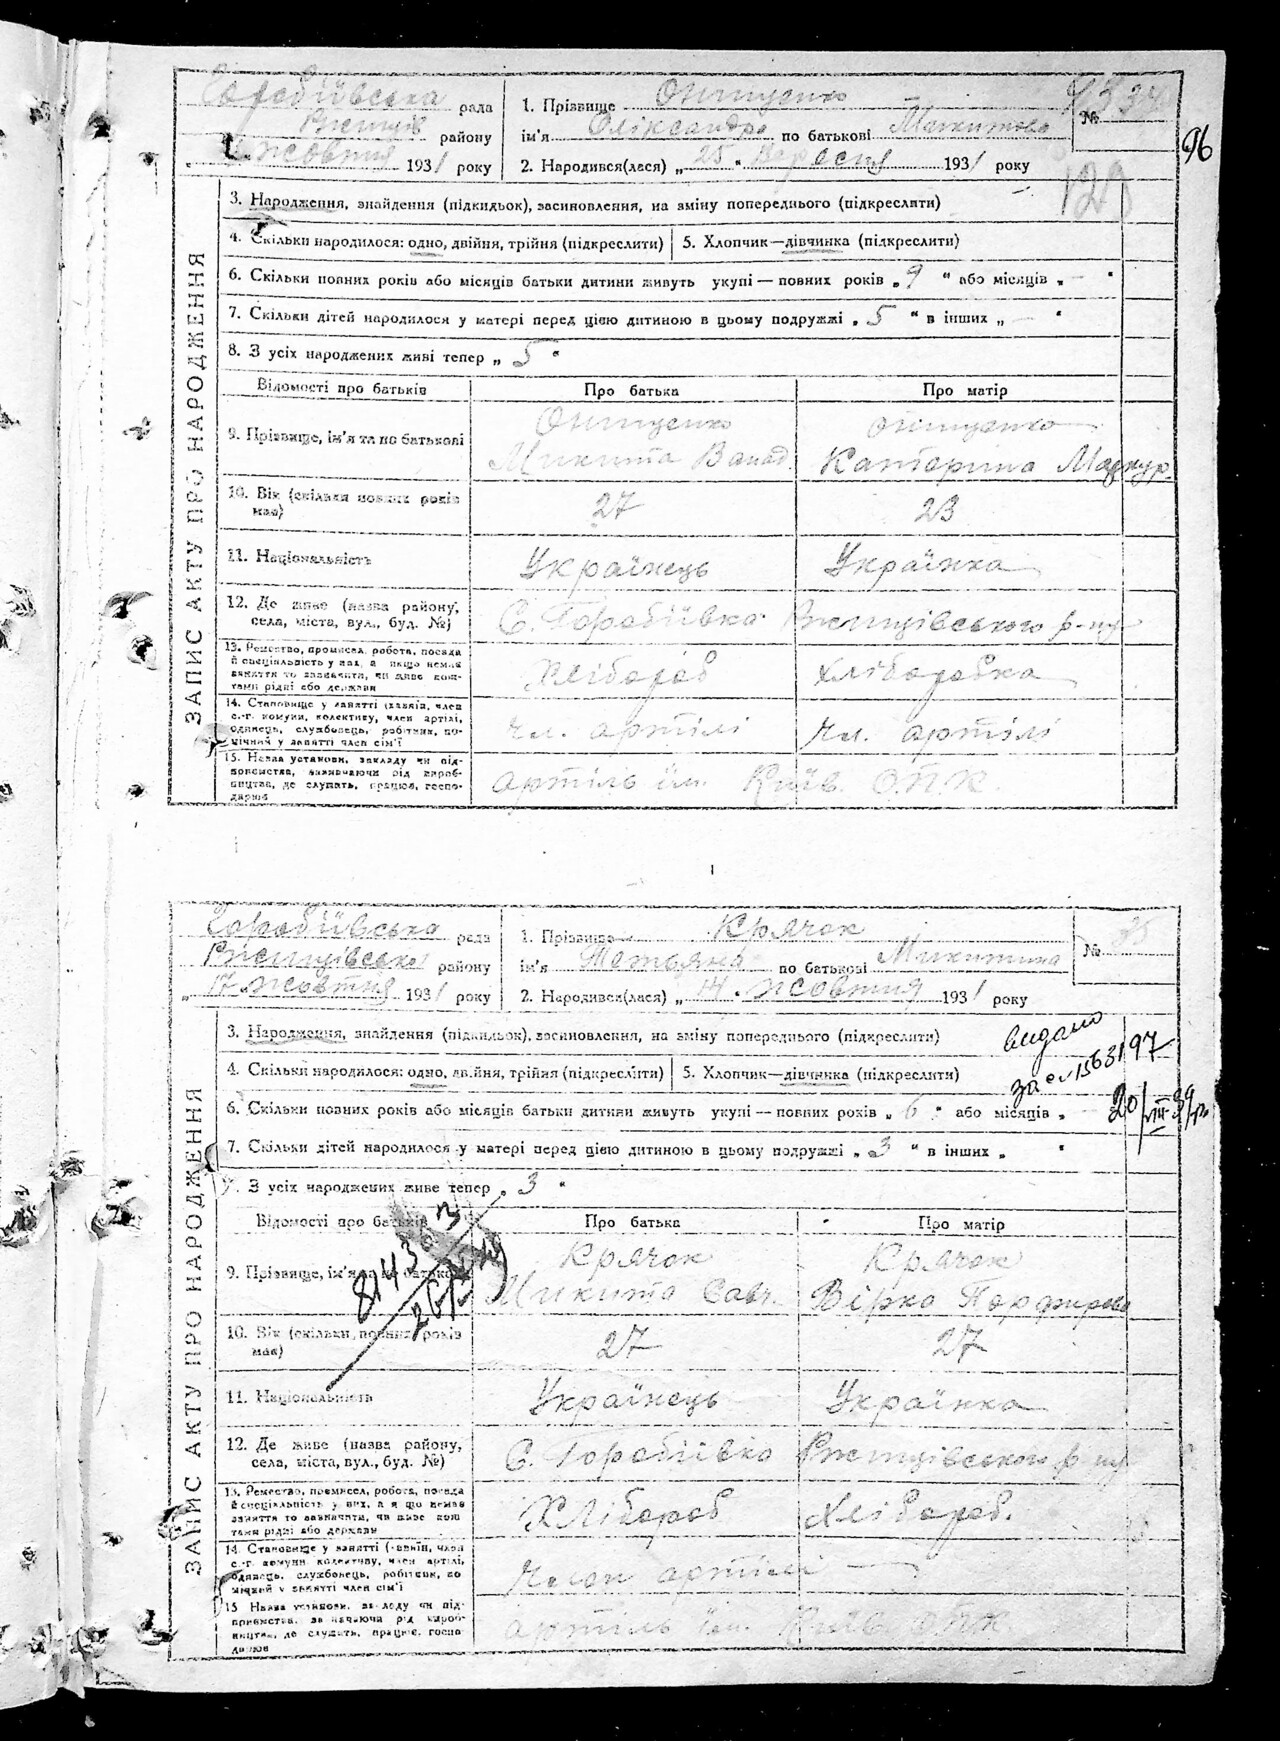 Горобіївська рада
Ржищів району
жовтня 1931 року
1. Прізвище Онищенко
ім'я Оліксандра по батькові Микитова
2. Народився(лася) „ 25 " Вересня 1931 року
№ 34
96
129
ЗАПИС АКТУ ПРО НАРОДЖЕННЯ
3. Народження, знайдення (підкидьок), засиновлення, на зміну попереднього (підкреслити)
4. Скільки народилося: одно, двійня, трійня (підкреслити) 5. Хлопчик—дівчинка (підкреслити)
6. Скільки повних років або місяців батьки дитини живуть укупі — повних років „ 9 " або місяців „ — "
7. Скільки дітей народилося у матері перед цією дитиною в цьому подружжі „ 5 " в інших „ — "
8. З усіх народжених живі тепер „ 5 "
Відомості про батьків Про батька Про матір
9. Прізвище, ім'я та по батькові Онищенко Онищенко
Микита Катарина
10. Вік (скільки повних років має) 27 23
11. Національність Українець Українка
12. Де живе (назва району, села, міста, вул., буд. №) С. Горобіївка Ржищівського р-ну
13. Ремество, промисел, робота, посада
й спеціальність у них, а якщо немає
заняття то зазначити, чи живе кош-
тами рідні або держави Хлібороб Хліборобка
14. Становище у занятті (хазяїн, член
с.-г. комуни, колективу, член артілі,
одинець, службовець, робітник, по-
мічний у занятті член сім'ї Чл. артілі Чл. артілі
15. Назва установи, закладу чи під-
приємства, зазначаючи рід вироб-
ництва, де служать, працює, госпо-
дарює артіль ім. Київ. О.П.К.
Горобіївська рада
Ржищівсько району
„ 17 жовтня 1931 року
1. Прізвище Крячок
ім'я Тотьяна по батькові Микитина
2. Народився(лася) „ 14 " жовтня 1931 року
№ 35
ЗАПИС АКТУ ПРО НАРОДЖЕННЯ
3. Народження, знайдення (підкидьок), засиновлення, на зміну попереднього (підкреслити)
видано
4. Скільки народилося: одно, двійня, трійня (підкреслити) 5. Хлопчик—дівчинка (підкреслити)
97
6. Скільки повних років або місяців батьки дитини живуть укупі — повних років „ 6 " або місяців „
7. Скільки дітей народилося у матері перед цією дитиною в цьому подружжі „ 3 " в інших „ "
З усіх народжених живе тепер „ 3 "
Відомості про батьків Про батька Про матір
9. Прізвище, ім'я та по батькові Крячок Крячок
Микита Савч. Вірка Порфирова
10. Вік (скільки повних років має) 27 27
11. Національність Українець Українка
12. Де живе (назва району, села, міста, вул., буд. №) С. Горобіївка Ржищівського р-ну
13. Ремество, промисел, робота, посада
й спеціальність у них, а якщо немає
заняття то зазначити, чи живе кош
тами рідні або держави Хлібороб Хлібороб.
14. Становище у занятті (хазяїн, член
с.-г. комуни, колективу, член артілі,
одинець, службовець, робітник, по
мічний у занятті член сім'ї Член артілі
15 Назва установи, закладу чи під-
приємства, зазначаючи рід вироб-
ництва, де служать, працює, госпо
дарює артіль ім. Київ О.П.К.